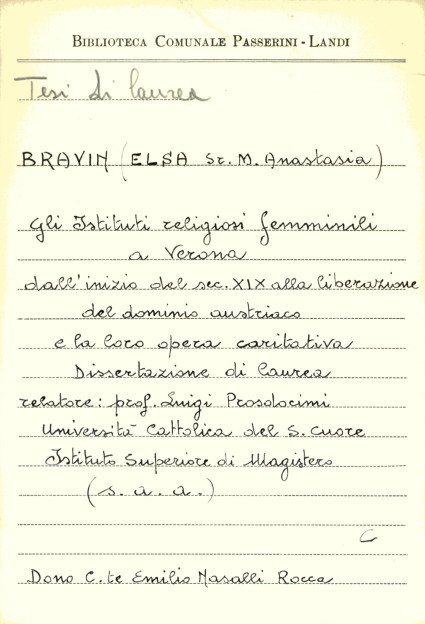 BIBLIOTECA COMUNALE PASSERINI-LANDI
Tesi di laurea
BRAVIN (ELSA Sr. M. Anastasia)
Gli Istituti religiosi femminili
a Verona
dall'inizio del sec. XIX alla liberazione
del dominio austriaco
e la loro opera caritativa
Dissertazione di laurea
relatore: prof. Luigi Prosdocimi
Università Cattolica del S. Cuore
Istituto Superiore di Magistero
(s. a. a.)
C
Dono C.te Emilio Nasalli Rocca